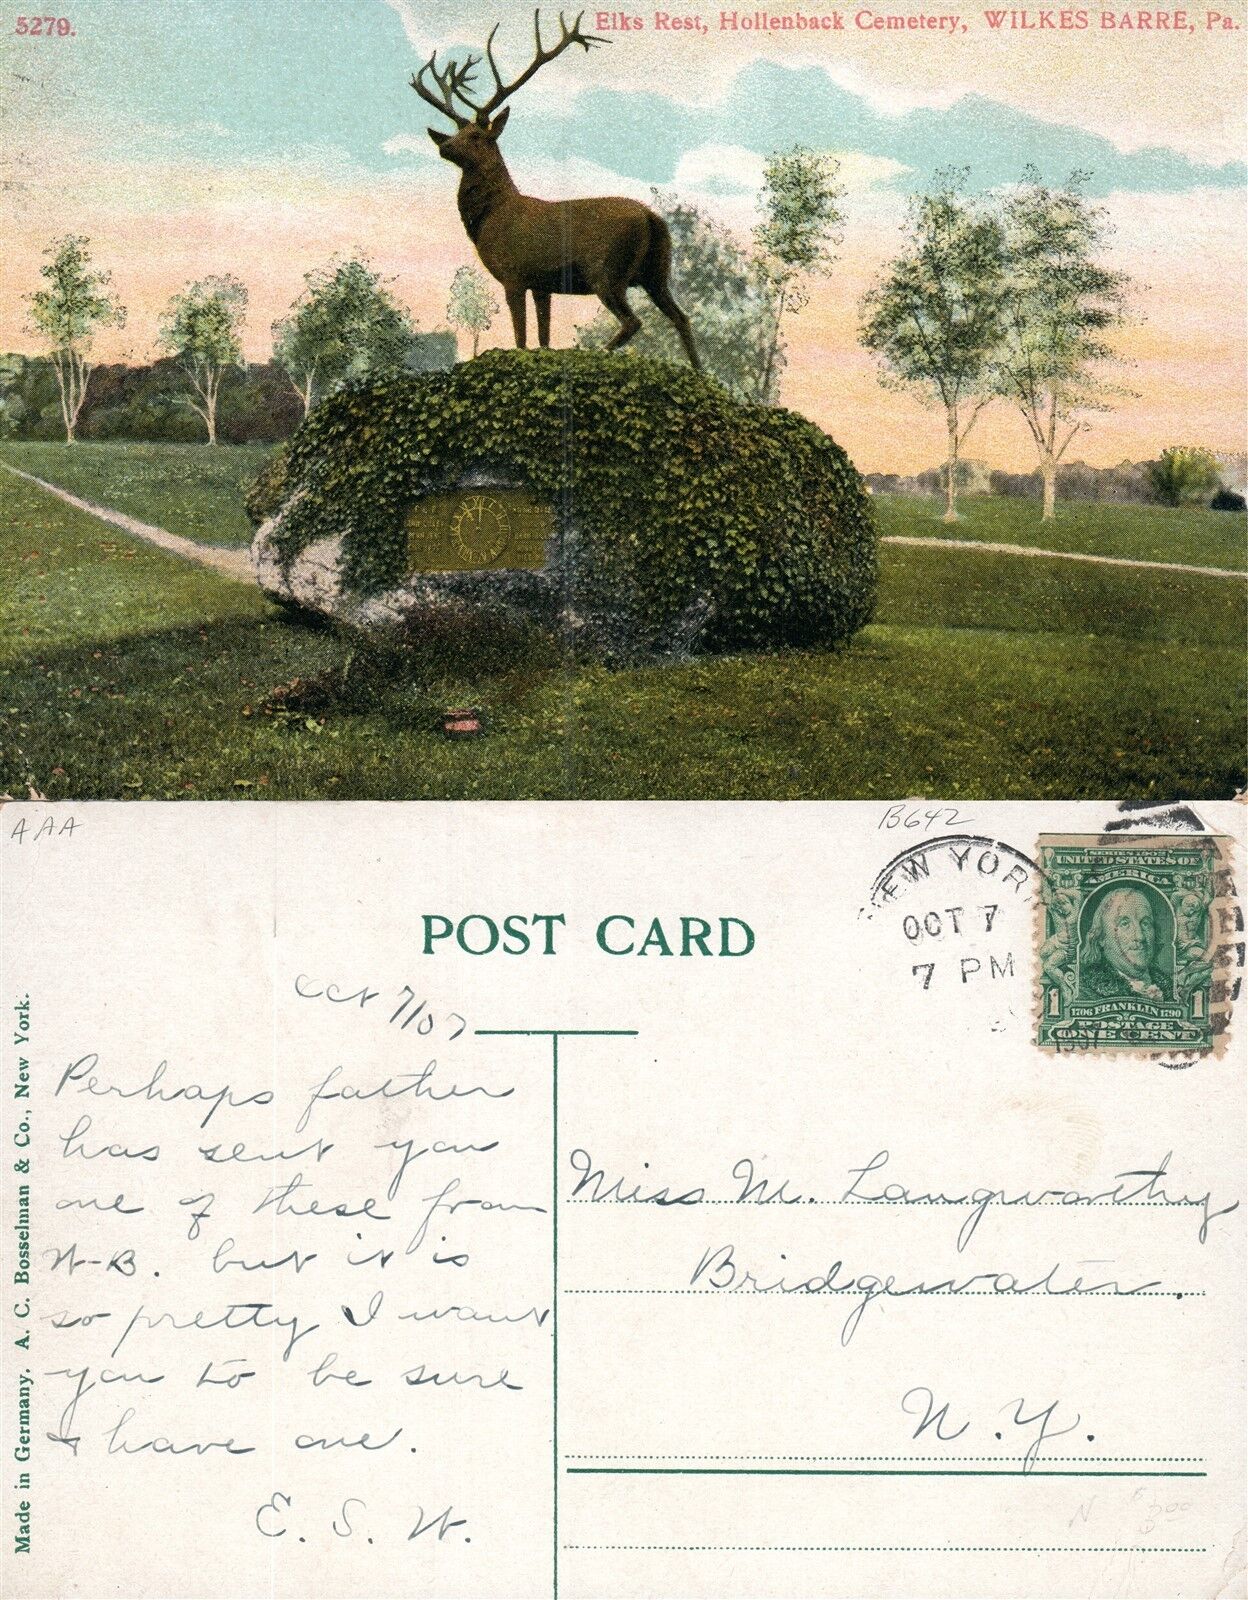 5279.
Elks Rest, Hollenback Cemetery, WILKES BARRE, Pa.
AAA
B642
NEW YORK
OCT 7
7 PM
1907
SERIES 1902
UNITED STATES OF
AMERICA
1
1706 FRANKLIN 1790
1
POSTAGE
ONE CENT
POST CARD
Oct 7/07
Perhaps father
has sent you
one of these from
W-B. but it is
so pretty I want
you to be sure
& have one.
E. S. W.
Miss M. Langworthy
Bridgewater.
N. Y.
N 3.00
Made in Germany. A. C. Bosselman & Co., New York.